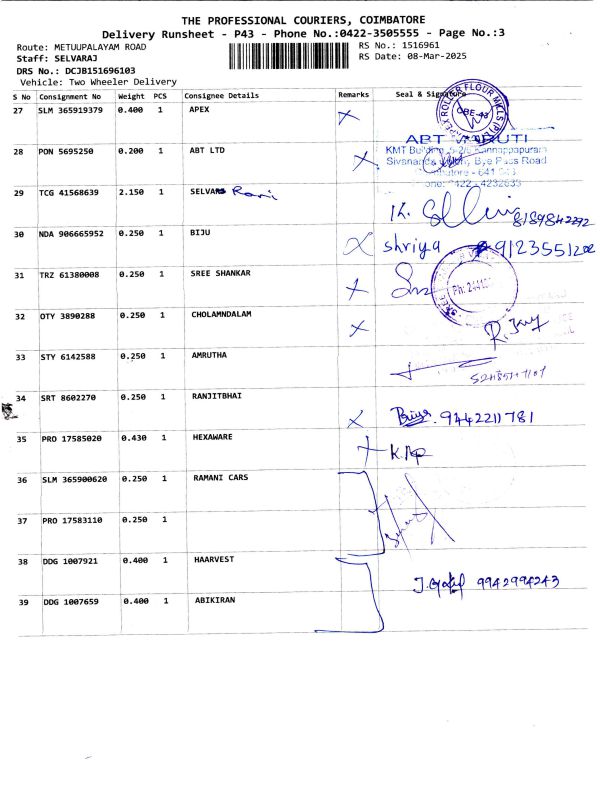 THE PROFESSIONAL COURIERS, COIMBATORE
Delivery Runsheet - P43 - Phone No.:0422-3505555 - Page No.:3
Route: METUUPALAYAM ROAD RS No.: 1516961
Staff: SELVARAJ RS Date: 08-Mar-2025
DRS No.: DCJB151696103
Vehicle: Two Wheeler Delivery
S No Consignment No Weight PCS Consignee Details Remarks Seal & Signature
27 SLM 365919379 0.400 1 APEX
APEX ROLLER FLOUR MILLS (P)
CBE-43
28 PON 5695250 0.200 1 ABT LTD
ABT MARUTI
KMT Building
Bye Pass Road
29 TCG 41568639 2.150 1 SELVA Rani
30 NDA 906665952 0.250 1 BIJU shriya
31 TRZ 61380008 0.250 1 SREE SHANKAR
32 OTY 3890288 0.250 1 CHOLAMNDALAM
33 STY 6142588 0.250 1 AMRUTHA
34 SRT 8602270 0.250 1 RANJITBHAI
Priya 9442211781
35 PRO 17585020 0.430 1 HEXAWARE
36 SLM 365900620 0.250 1 RAMANI CARS
37 PRO 17583110 0.250 1
38 DDG 1007921 0.400 1 HAARVEST
9942994243
39 DDG 1007659 0.400 1 ABIKIRAN